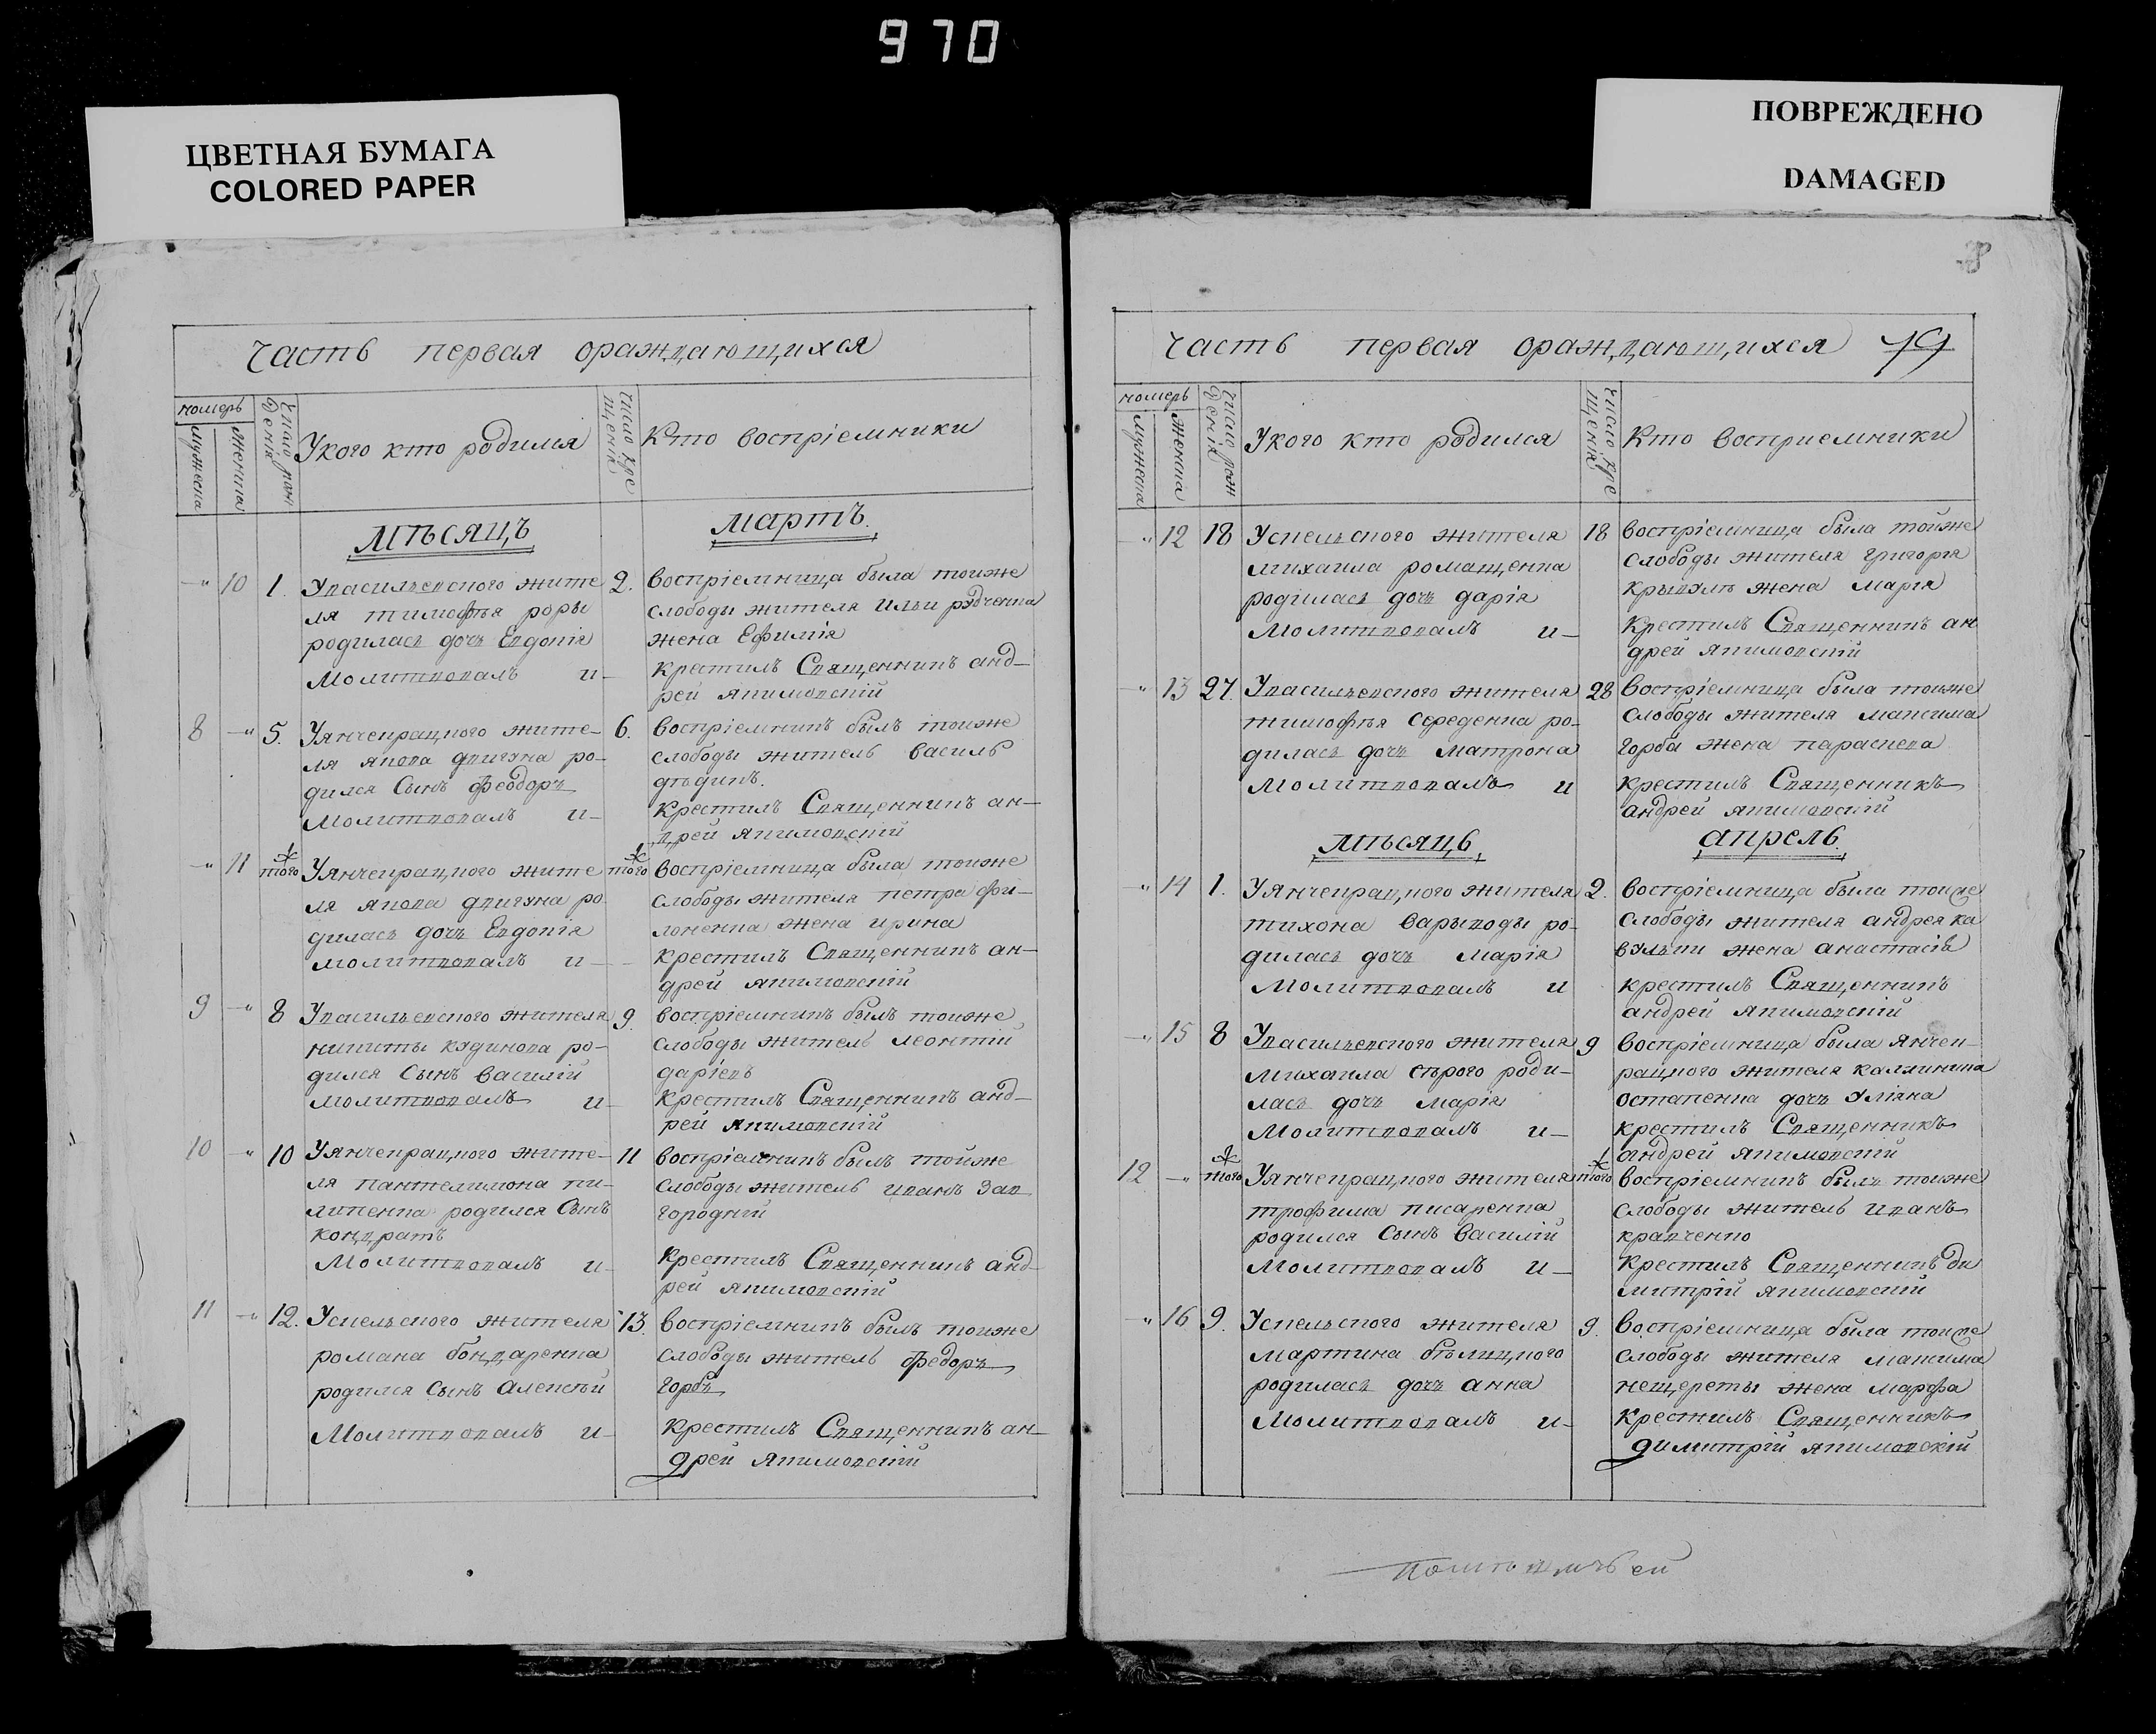 970
ЦВЕТНАЯ БУМАГА
COLORED PAPER
ПОВРЕЖДЕНО
DAMAGED
Часть первая ораждающихся
номеръ
мужеска
женска
число рож
денiя
Укого кто родился
число кре
щенiя
Кто воспрiемники
Мѣсяцъ мартъ.
10 1. Увасильевского жите
ля тимофѣя
родилась дочь Евдокiя
Молитвовалъ и
2. воспрiемница была тойже
слободы жителя ильи
жена Ефимiя
крестилъ Священникъ анд
рей якимовскiй
8 5. Уянченрацкого жите
ля якова двигуна ро
дился Сынъ Феодоръ
Молитвовалъ и
6. воспрiемникъ былъ тойже
слободы житель василь
дѣдикъ.
крестилъ Священникъ ан
дрей якимовскiй
11 тогож Уянченрацкого жите
ля якова двигуна ро
дилась дочь Евдокiя
молитвовалъ и
тогож воспрiемница была тойже
слободы жителя петра фи
лоненка жена ирина
крестилъ Священникъ ан
дрей якимовскiй
9 8 Увасильевского жителя
никиты кудинова ро
дился Сынъ василiй
молитвовалъ и
9. воспрiемникъ былъ тойже
слободы житель леонтiй
дарiевъ
крестилъ Священникъ анд
рей якимовскiй
10 10 Уянченрацкого жите
ля пантелимона пи
липенка родился Сынъ
кондратъ
Молитвовалъ и
11 воспрiемникъ былъ тойже
слободы житель иванъ Зав
городнiй
крестилъ Священникъ анд
рей якимовскiй
11 12. Усцельского жителя
романа бондаренка
родился Сынъ алексѣй
Молитвовалъ и
13. воспрiемникъ былъ тойже
слободы житель федоръ
горбъ
крестилъ Священникъ ан
дрей якимовскiй
Часть первая ораждающихся 79
номеръ
мужеска
женска
число рож
денiя
Укого кто родился
число кре
щенiя
Кто восприемники
12 18 Усцельсного жителя
михаила ромащенка
родилась дочь дарiя
Молитвовалъ и
18 воспрiемница была тойже
слободы жителя григорiя
жена марiя
крестилъ Священникъ ан
дрей якимовскiй
13 27. Увасильевского жителя
тимофѣя Середенка ро
дилась дочь матрона
Молитвовалъ и
28 воспрiемница была тойже
слободы жителя максима
горба жена параскева
крестилъ Священникъ
андрей якимовскiй
Мѣсяцъ апрель.
14 1. Уянченрацкого жителя
тихона варыводы ро
дилась дочь марiя
Молитвовалъ и
2. воспрiемница была тойже
слободы жителя андрея ка
вульки жена анастасiя
крестилъ Священникъ
андрей якимовскiй
15 8 Увасильевского жителя
михаила сѣрого роди
лась дочь марiя
Молитвовалъ и
9 воспрiемница была янчен
рацкого жителя каллиника
остапенка дочь Улiяна
крестилъ Священникъ
андрей якимовскiй
12 тогож Уянченрацкого жителя
трофима писаренка
родился Сынъ василiй
Молитвовалъ и
тогож воспрiемникъ былъ тойже
слободы житель иванъ
кравченко
крестилъ Священникъ ди
митрiй якимовскiй
16 9. Усцельсного жителя
мартина бѣлицкого
родилась дочь анна
Молитвовалъ и
9. воспрiемница была тойже
слободы жителя максима
нещереты жена марфа
крестилъ Священникъ
димитрiй якимовскiй